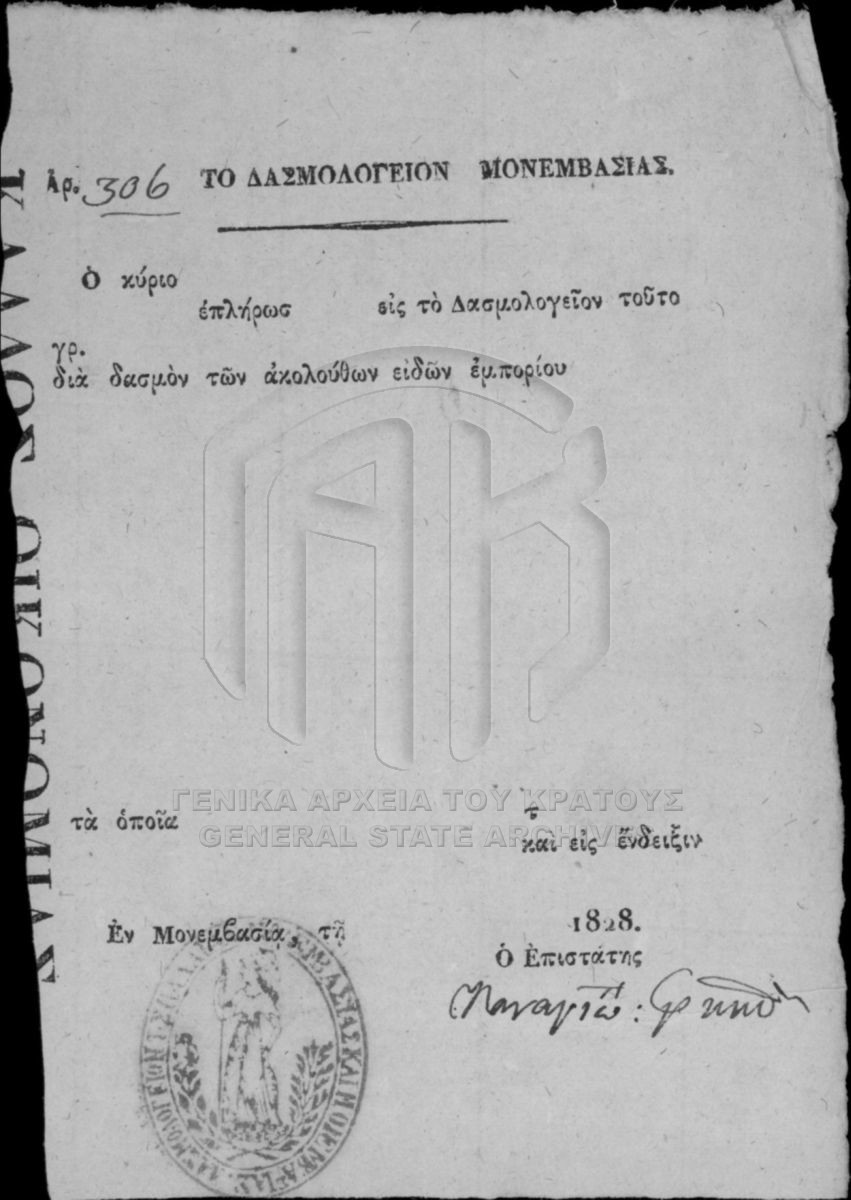 Ἀρ. 306 ΤΟ ΔΑΣΜΟΛΟΓΕΙΟΝ ΜΟΝΕΜΒΑΣΙΑΣ.
Ὁ κύριο
ἐπλήρωσ εἰς τὸ Δασμολογεῖον τοῦτο
γρ.
διὰ δασμὸν τῶν ἀκολούθων εἰδῶν ἐμπορίου
ΓΑΚ
ΓΕΝΙΚΑ ΑΡΧΕΙΑ ΤΟΥ ΚΡΑΤΟΥΣ
GENERAL STATE ARCHIVES
τὰ ὁποῖα τ
καὶ εἰς ἔνδειξιν
Ἐν Μονεμβασίᾳ, τῇ 1828.
Ὁ Ἐπιστάτης
ΟΙΚΟΝΟΜΙΑΣ